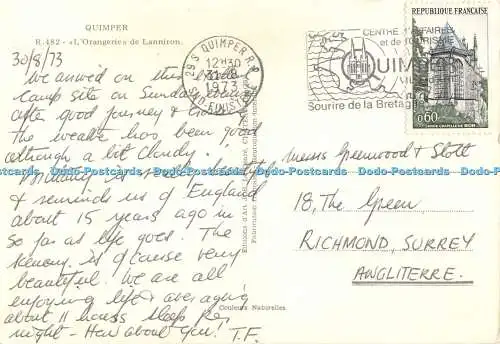 QUIMPER
R.482 - «L'Orangerie» de Lanniron.
30/8/73
We arrived on this
camp site on Sunday
after good journey &
The weather has been good
although a bit cloudy.
Brittany is really beautiful
& reminds us of England
about 15 years ago in
so far as life goes. The
scenery is of course very
beautiful. We are all
enjoying life & averaging
about 11 hours sleep per
night - How about you! T.F.
Couleurs Naturelles.
QUIMPER R.P.
12H30
1973
29 SUD-FINISTERE
CENTRE D'AFFAIRES
et de TOURISME
QUIMPER
Sourire de la Bretagne
REPUBLIQUE FRANÇAISE
0,60
Messrs Greenwood & Stott
18, The Green
RICHMOND, SURREY
ANGLETERRE.
Dodo-Postcards.com Dodo-Postcards.com Dodo-Postcards.com Dodo-Postcards.com Dodo-Postcards.com